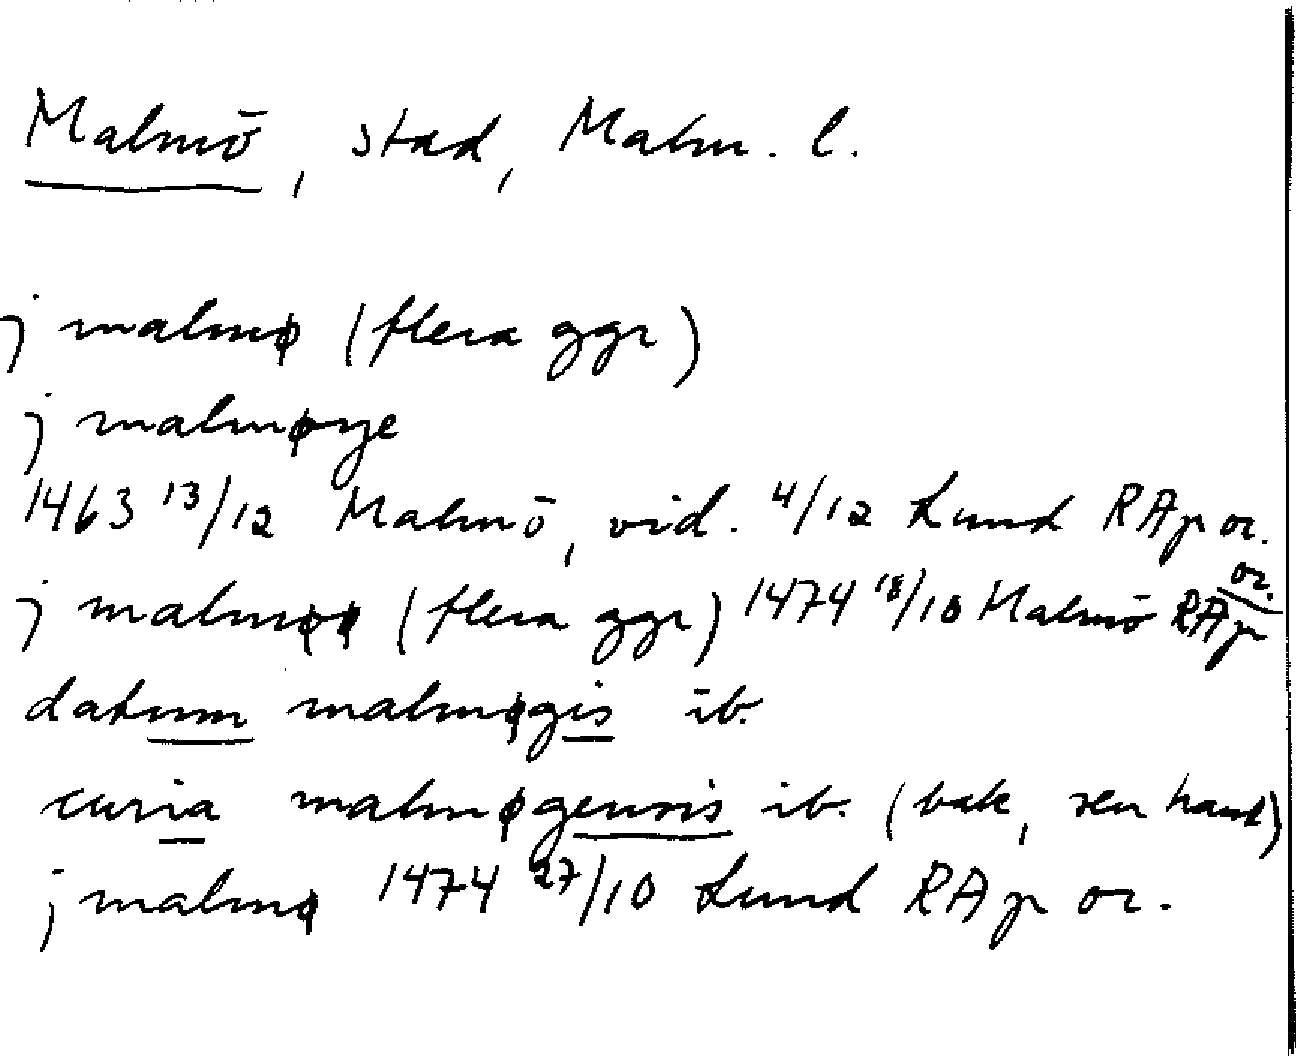 Malmö, stad, Malm. l.
j malmø (flera ggr)
j malmøye
1463 13/12 Malmö, vid. 4/12 Lund RAp or.
j malmøø (flera ggr) 1474 18/10 Malmö RAp or.
datum malmøgis ib.
curia malmøgensis ib. (bak, sen hand)
j malmø 1474 27/10 Lund RAp or.